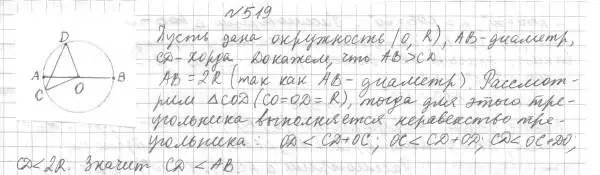 №519
D
A
O
B
C
Пусть дана окружность (О, R), АВ-диаметр,
CD-хорда. Докажем, что АВ>CD.
АВ = 2R (так как АВ- диаметр). Рассмот-
рим △COD (CO=OD= R), тогда для этого тре-
угольника выполняется неравенство тре-
угольника: OD < CD+OC; OC < CD+OD; CD< OC+DO;
CD< 2R. Значит CD < AB